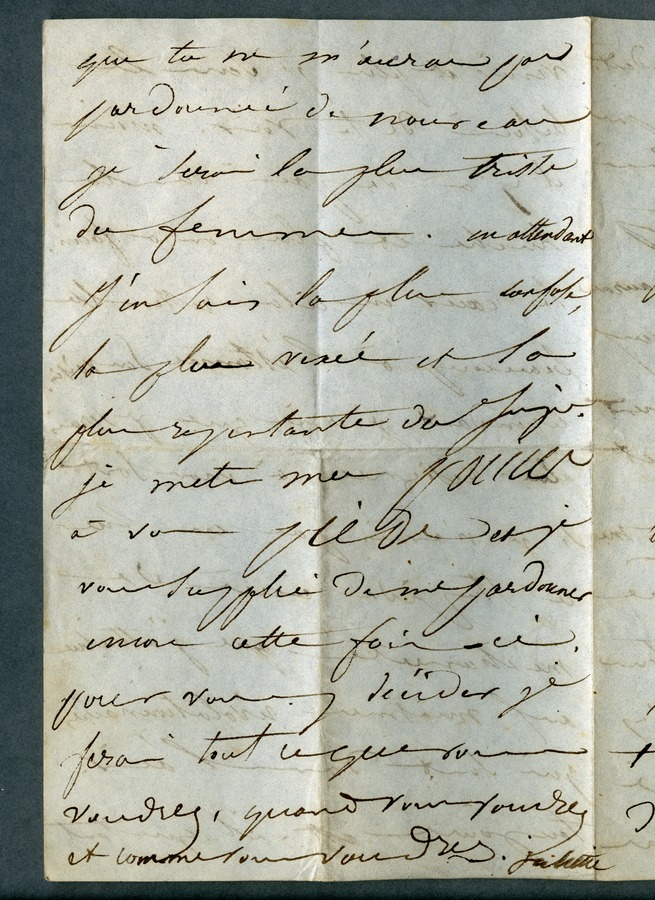 que tu ne m'auras pas
pardonnée de nouveau
je serai la plus triste
des femmes. en attendant
J'en suis la plus confuse,
la plus vexée et la
plus repentante des Juju.
je mets mes
à vos PIEDS et je
vous supplie de me pardonner
encore cette fois-ci.
pour vous y décider je
ferai tout ce que vous
voudrez, quand vous voudrez
et comme vous voudrez. Juliette